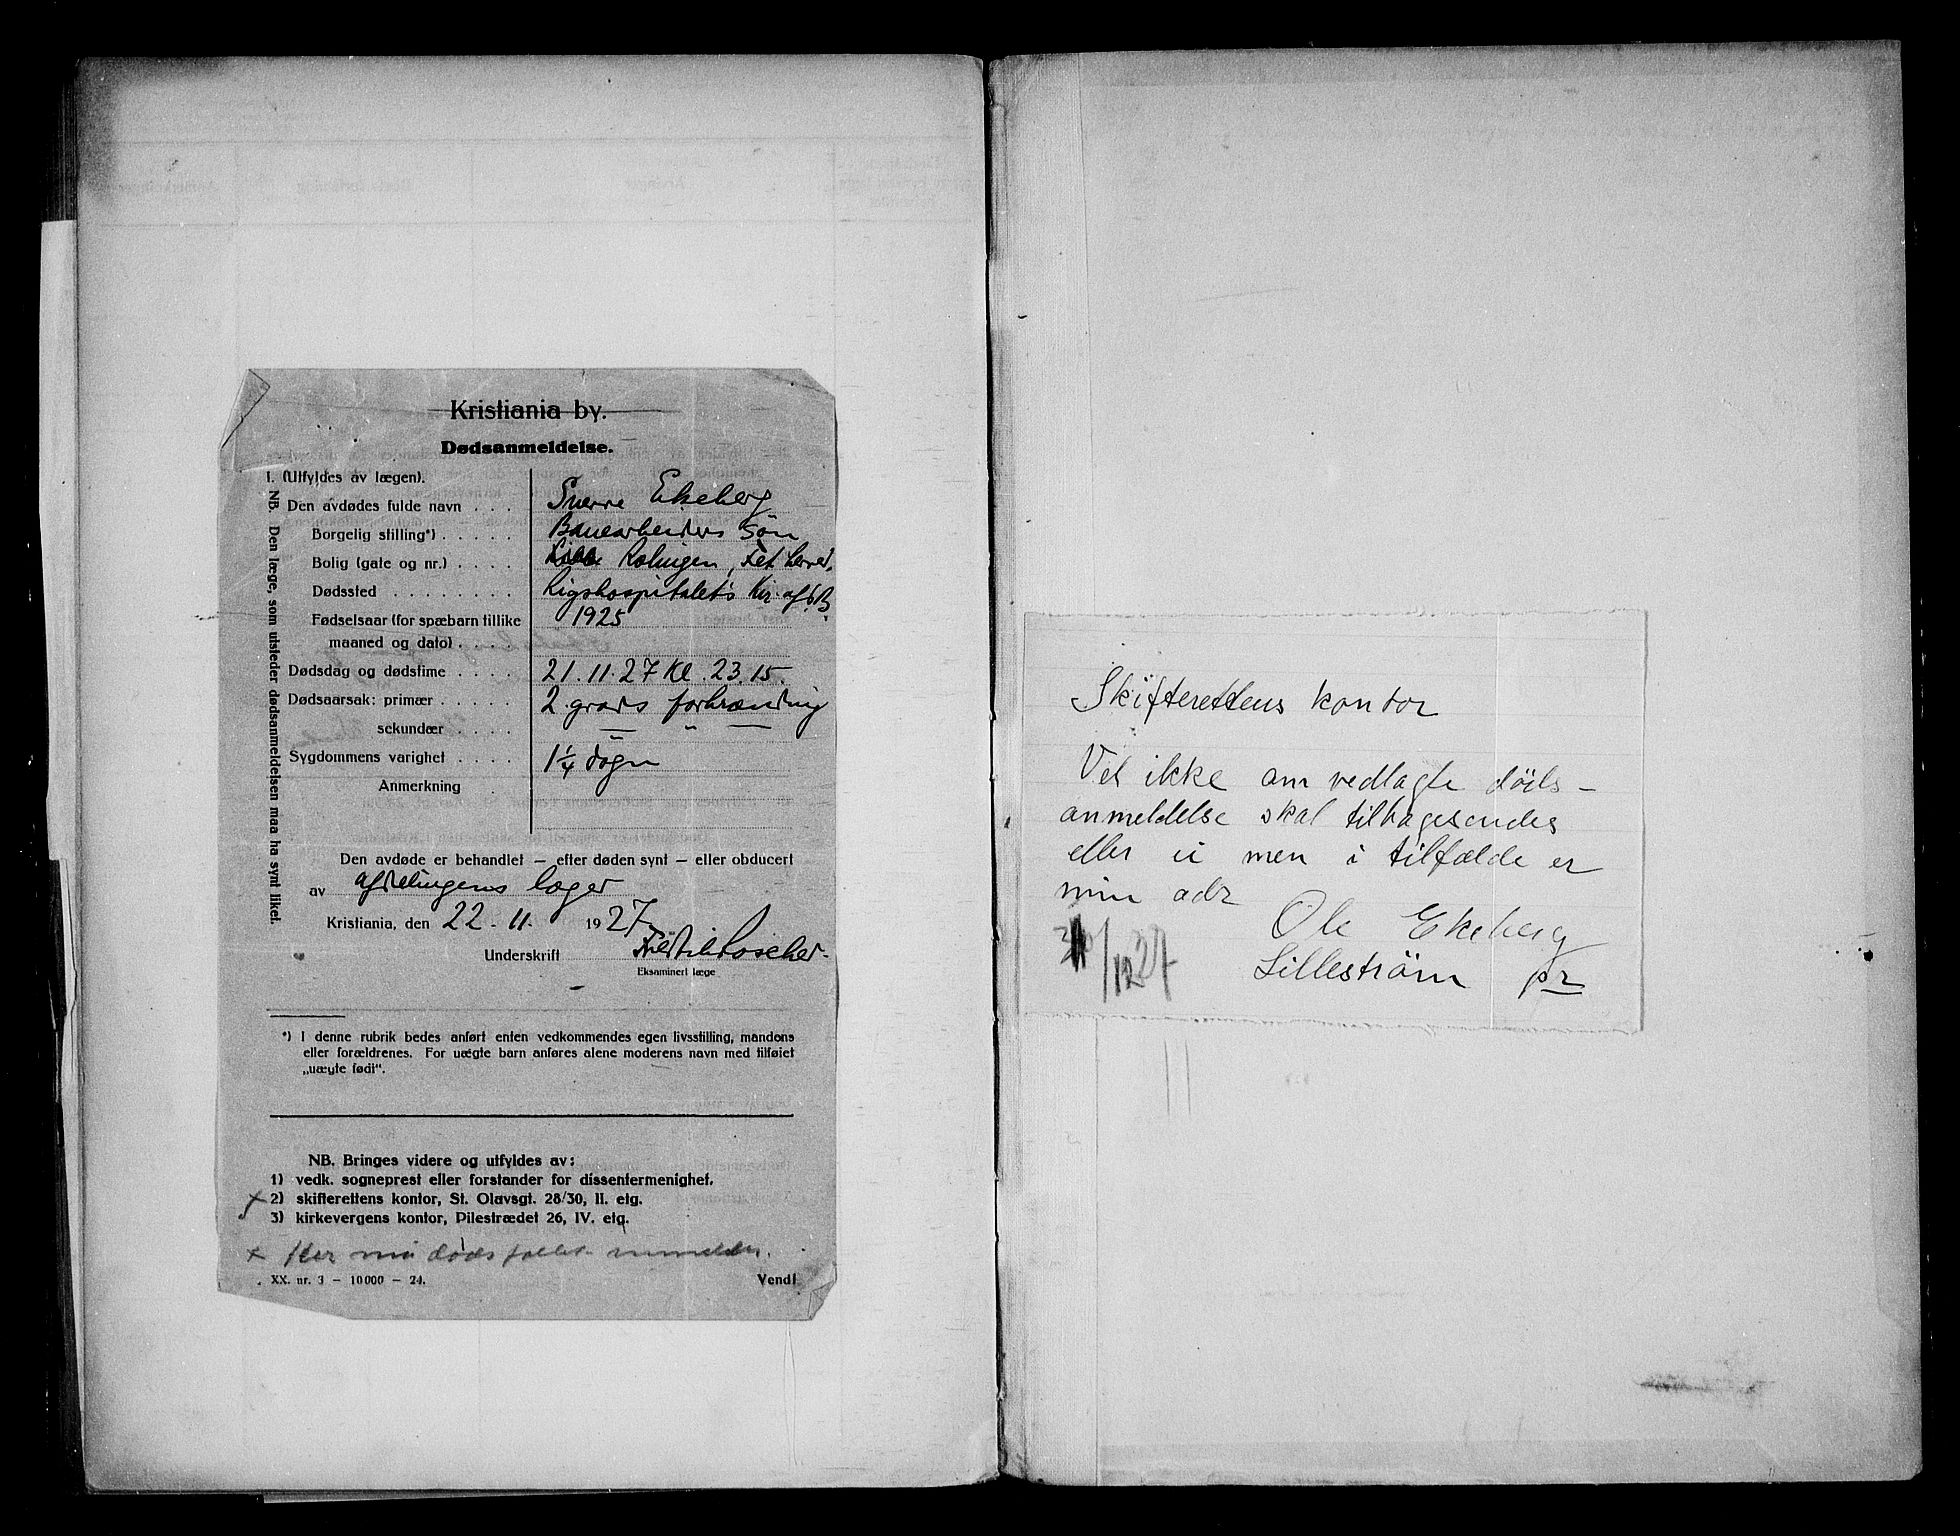 Kristiania by.
Dødsanmeldelse.
I. (Utfyldes av lægen).
NB. Den læge, som utsteder dødsanmeldelsen maa ha synt liket.
Den avdødes fulde navn . . . Sverre Ekeberg
Borgelig stilling*) . . . . . Banearbeiders søn
Bolig (gate og nr.) . . . . Rælingen, Fet herred.
Dødssted . . . . . . . . Rigshospitalets Kir. afd. B
Fødselsaar (for spæbarn tillike 1925
maaned og dato) . . . .
Dødsdag og dødstime . . . . 21.11.27 Kl. 23.15.
Dødsaarsak: primær . . . . . 2 grads forbrænding
sekundær . . . . — " —
Sygdommens varighet . . . . 1¼ døgn
Anmerkning
Den avdøde er behandlet — efter døden synt — eller obducert
av afdelingens læger
Kristiania, den 22 - 11. 1927
Underskrift
Eksaminert læge
*) I denne rubrik bedes anført enten vedkommendes egen livsstilling, mandens
eller forældrenes. For uægte barn anføres alene moderens navn med tilføiet
„uægte født".
NB. Bringes videre og utfyldes av:
1) vedk. sogneprest eller forstander for dissentermenighet.
x 2) skifterettens kontor, St. Olavsgt. 28/30, II. etg.
3) kirkevergens kontor, Pilestrædet 26, IV. etg.
x Her må dødsfallet anmeldes.
XX. nr. 3 — 10000 — 24. Vend!
Skifterettens kontor
Vet ikke om vedlagte døds-
anmeldelse skal tilbagesendes
eller ei men i tilfælde er
min adr
Ole Ekeberg
/12 27 Lillestrøm pr